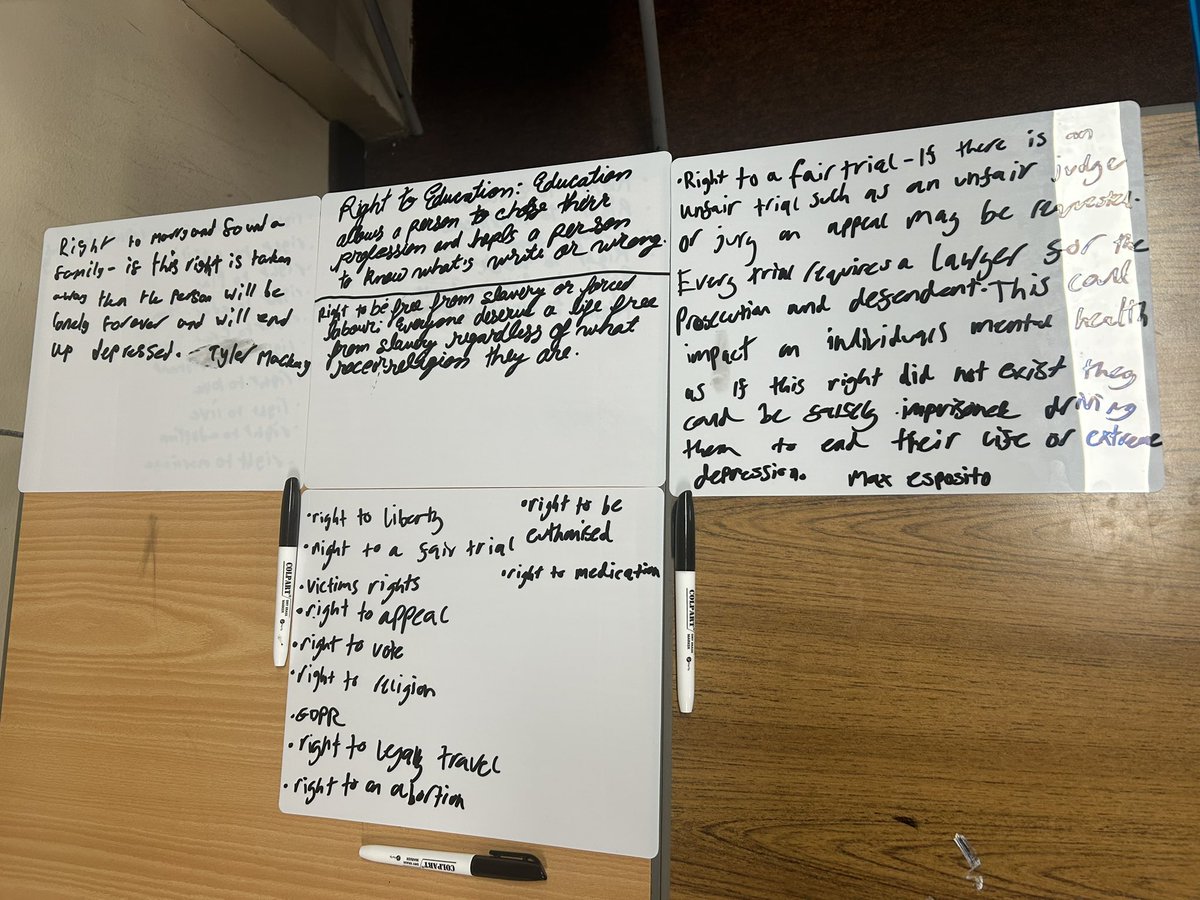 Right to marry and found a
family - if this right is taken
away then the person will be
lonely forever and will end
up depressed. - Tyler
Right to Education: Education
allows a person to chose there
profession and helps a person
to know what's write or wrong.
Right to be free from slavery or forced
labour: Everyone deserve a life free
from slavery regardless of what
race/religion they are.
•Right to a fair trial - If there is an
unfair trial such as an unfair judge
or jury an appeal may be requested.
Every trial requires a lawyer for the
prosecution and defendent. This could
impact an individuals mental health
as if this right did not exist they
could be falsely imprisoned driving
them to end their life or extreme
depression. Max esposito
•right to liberty
•right to a fair trial
•victims rights
•right to appeal
•right to vote
•right to religion
•GDPR
•right to legally travel
•right to an abortion
•right to be
euthanised
•right to medication
COLPART
COLPART
COLPART